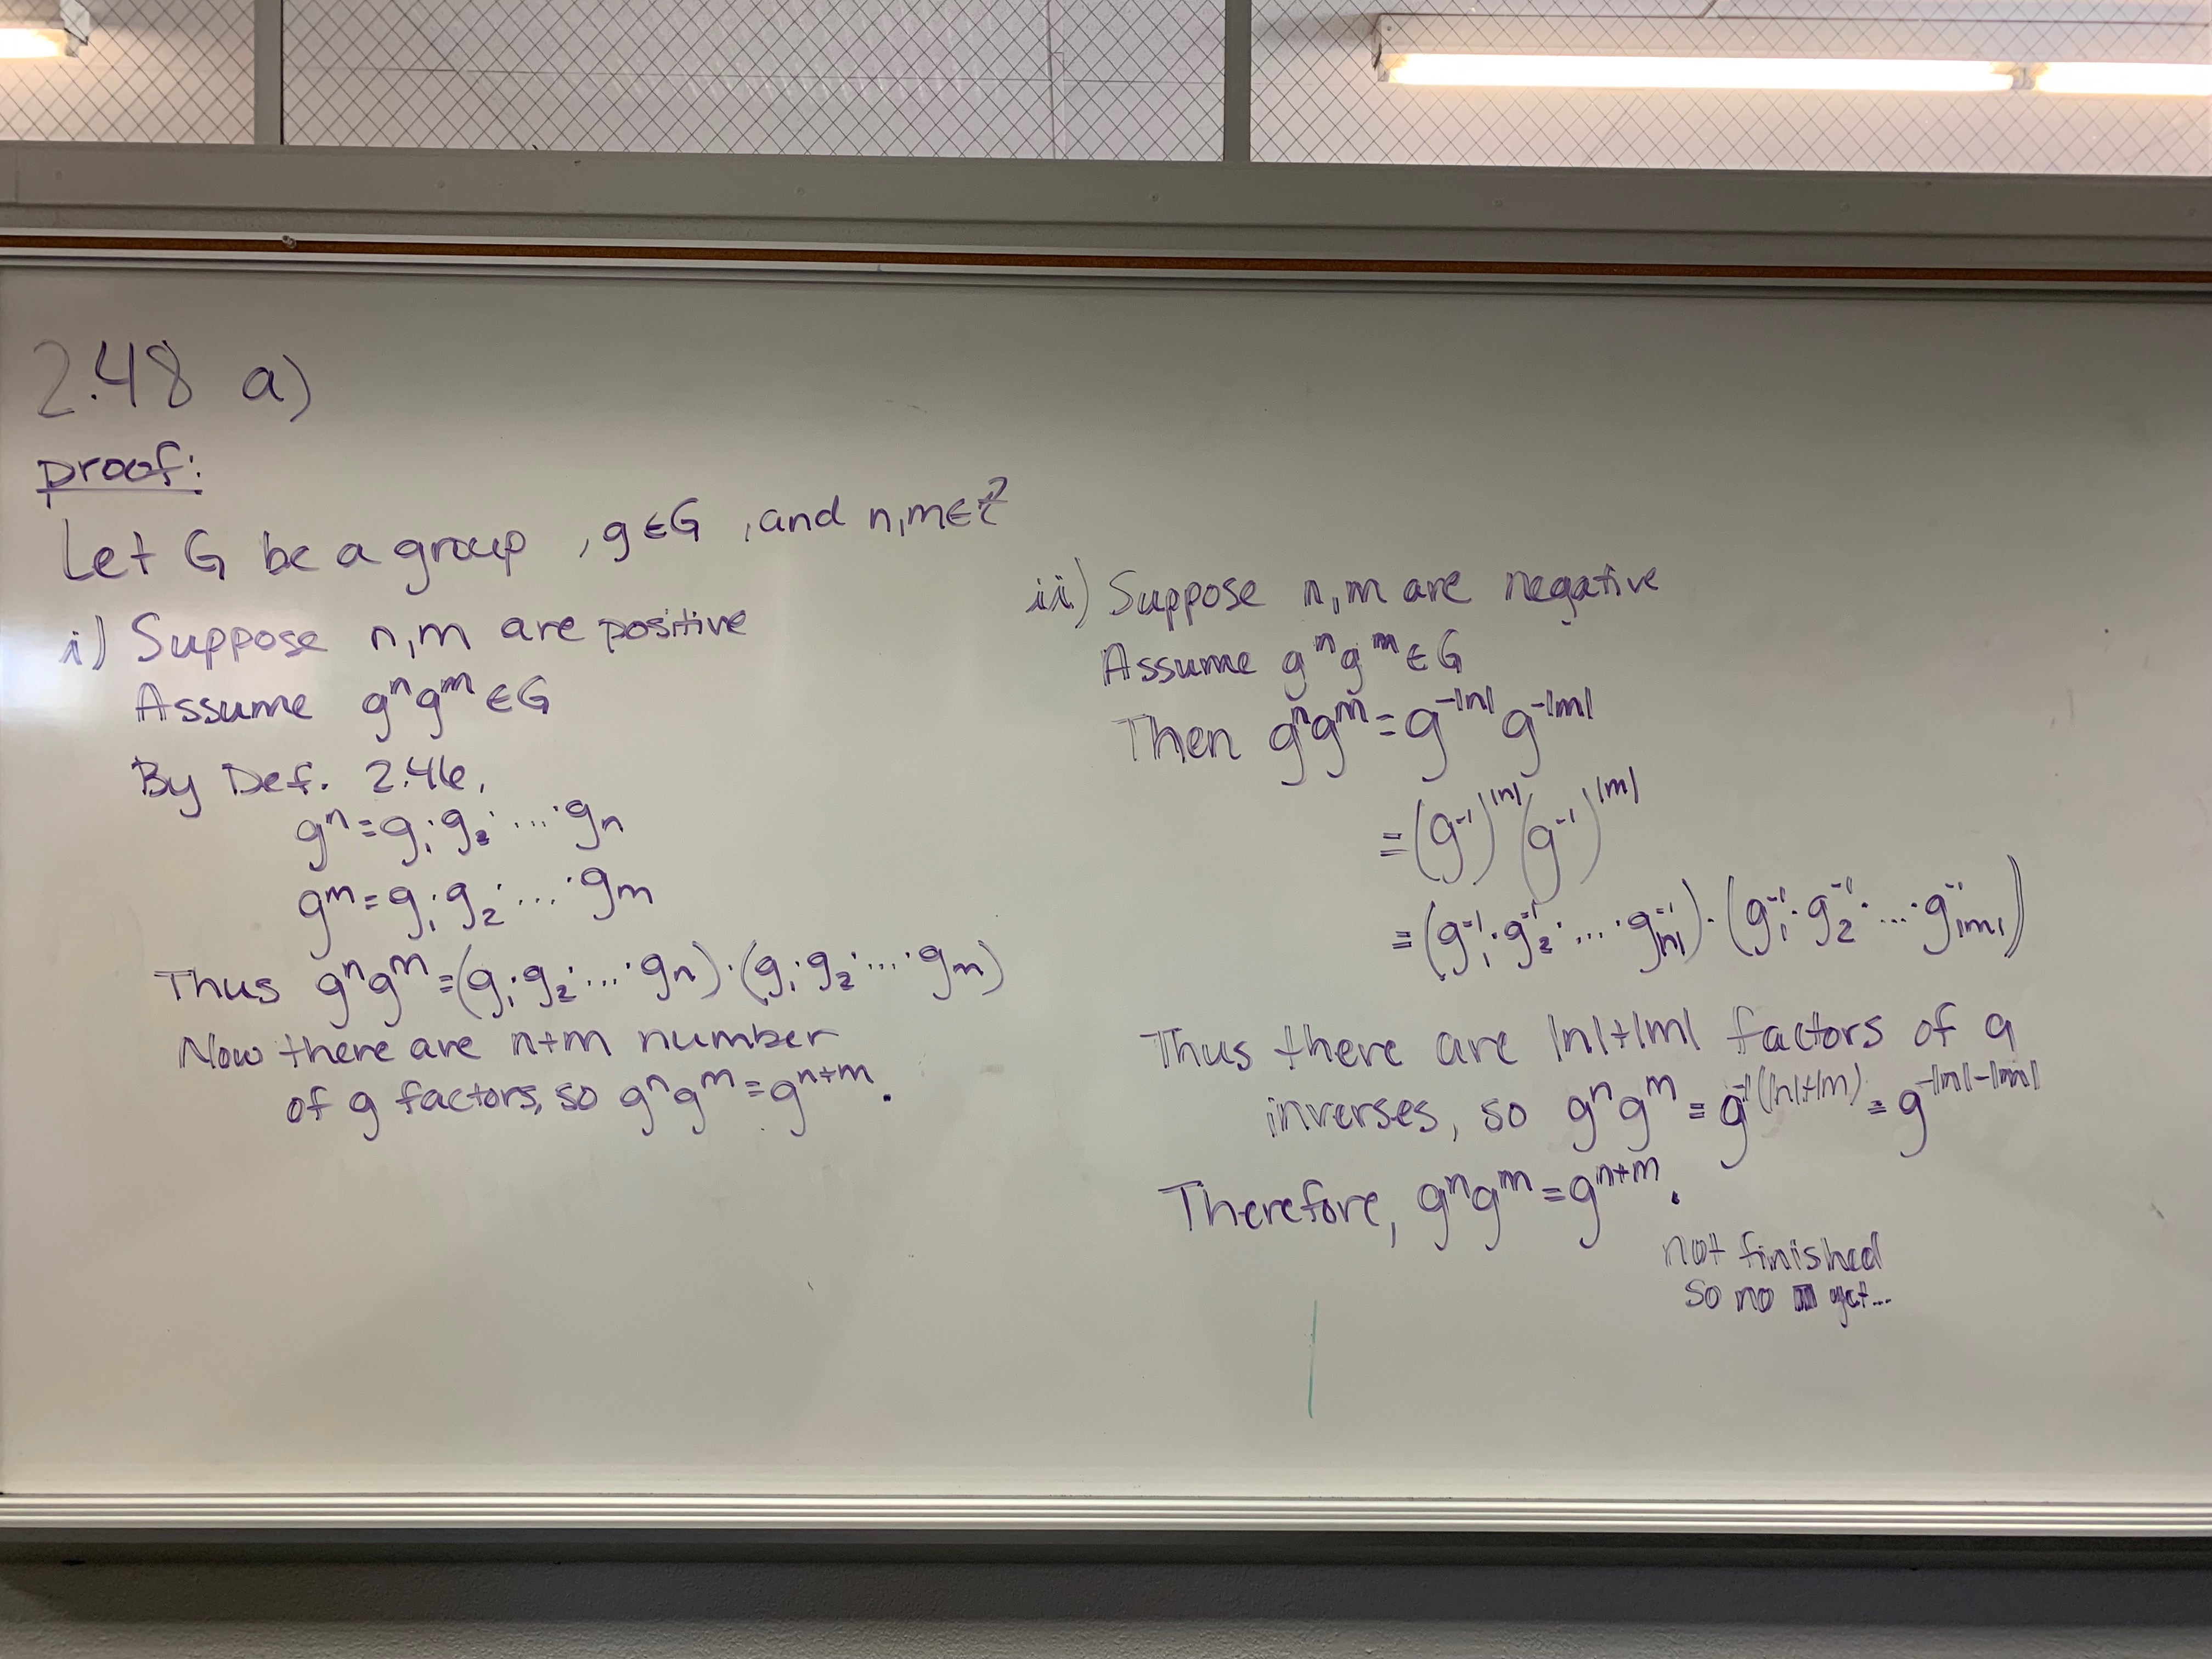 2.48 a)
proof:
Let G be a group, g∈G, and n,m∈ℤ
i) Suppose n,m are positive
Assume gⁿgᵐ∈G
By Def. 2.46,
gⁿ=g₁·g₂·...·gₙ
gᵐ=g₁·g₂·...·gₘ
Thus gⁿgᵐ=(g₁·g₂·...·gₙ)·(g₁·g₂·...·gₘ)
Now there are n+m number
of g factors, so gⁿgᵐ=gⁿ⁺ᵐ.
ii) Suppose n,m are negative
Assume gⁿgᵐ∈G
Then gⁿgᵐ=g^{-|n|} g^{-|m|}
=(g⁻¹)^{|n|}(g⁻¹)^{|m|}
=(g₁⁻¹·g₂⁻¹·...·g_{|n|}⁻¹)·(g₁⁻¹·g₂⁻¹·...·g_{|m|}⁻¹)
Thus there are |n|+|m| factors of g
inverses, so gⁿgᵐ=g^{-1(|n|+|m|)}=g^{-|n|-|m|}
Therefore, gⁿgᵐ=gⁿ⁺ᵐ.
not finished
so no ■ yet...